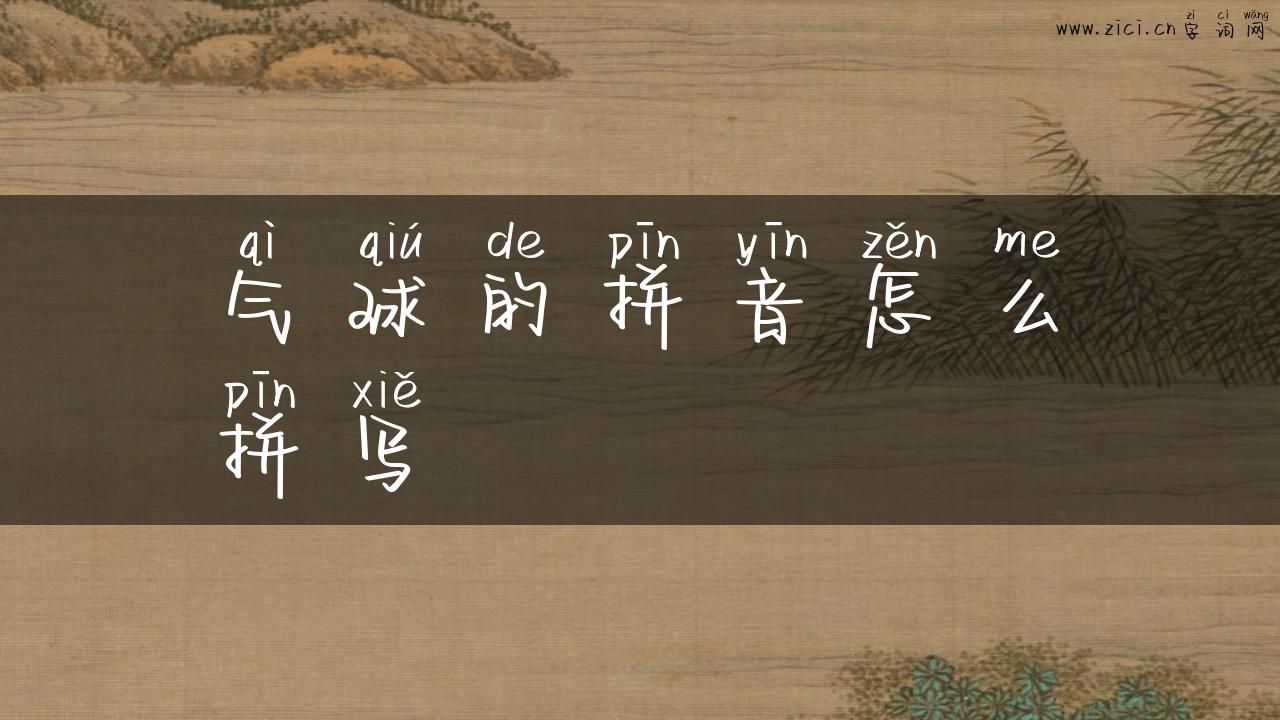 zì cí wǎng
www.zici.cn 字词网
qì qiú de pīn yīn zěn me
气球的拼音怎么
pīn xiě
拼写